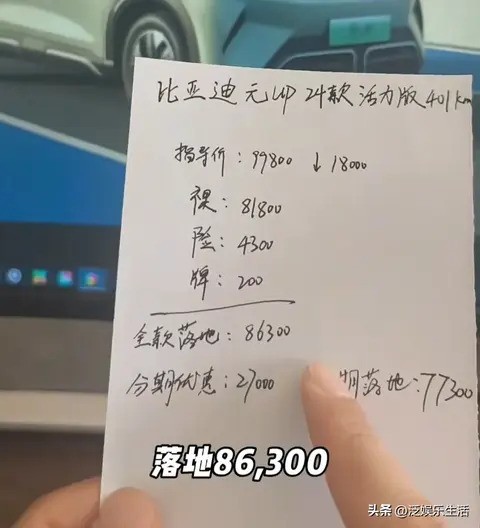 比亚迪元UP 24款 活力版 401km
指导价：99800 ↓18000
裸：81800
险：4300
牌：200
全款落地：86300
分期优惠：27000 期落地：77300
落地86,300
头条 @泛娱乐生活